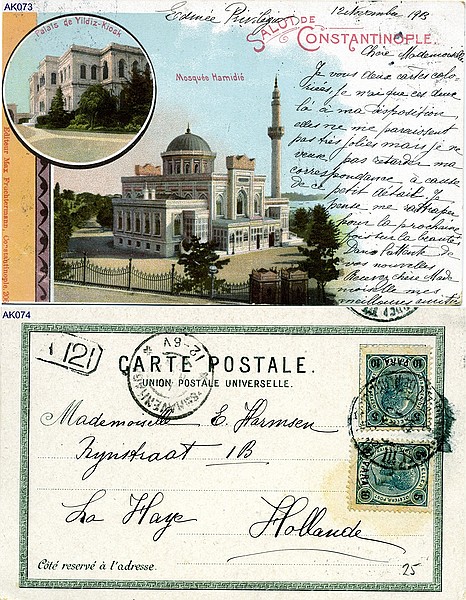 AK073
12 Novembre 1903
Palais de Yildiz-Kiosk
SALUT DE
CONSTANTINOPLE
Chère Mademoiselle
Mosquée Hamidié
Je vous deux cartes colo-
riées, je n'ai que ces deux
là à ma disposition
elles ne me paraissent
pas très jolies mais je ne
veux pas retarder ma
correspondance à cause
de ce petit détail. Je
pense me rattraper
pour la prochaine
Dans l'attente de
vos nouvelles
recevez chère Made
moiselle mes
meilleures amitiés
Editeur Max Fruchtermann, Constantinople
AK074
121
CARTE POSTALE.
UNION POSTALE UNIVERSELLE.
's GRAVENHAGE
10 PARA 10
10 PARA 10
Mademoiselle E. Harmsen
Rynstraat 1B
La Haye
Hollande
Côté reservé à l'adresse.
25